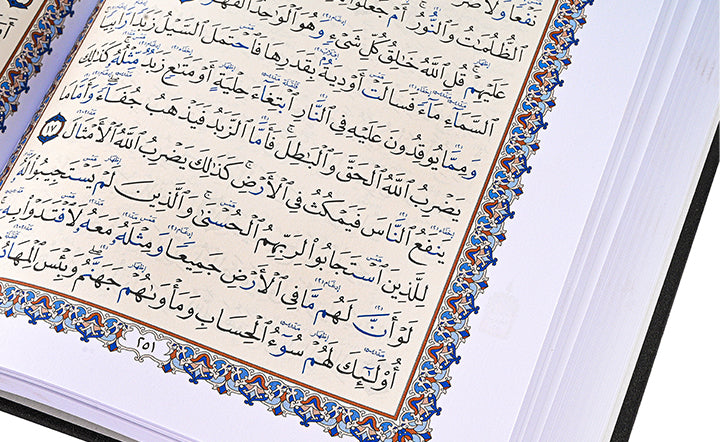 نَفْعًا وَلَا
ٱلظُّلُمَٰتُ وَٱلنُّورُ أَمْ جَعَلُوا۟
عَلَيْهِمْ قُلِ ٱللَّهُ خَٰلِقُ كُلِّ شَىْءٍ وَهُوَ ٱلْوَٰحِدُ
ٱلسَّمَآءِ مَآءً فَسَالَتْ أَوْدِيَةٌۢ بِقَدَرِهَا فَٱحْتَمَلَ ٱلسَّيْلُ زَبَدًا رَّابِيًا
وَمِمَّا يُوقِدُونَ عَلَيْهِ فِى ٱلنَّارِ ٱبْتِغَآءَ حِلْيَةٍ أَوْ مَتَٰعٍ زَبَدٌ مِّثْلُهُۥ ۚ كَذَٰلِكَ
يَضْرِبُ ٱللَّهُ ٱلْحَقَّ وَٱلْبَٰطِلَ ۚ فَأَمَّا ٱلزَّبَدُ فَيَذْهَبُ جُفَآءً ۖ وَأَمَّا مَا
يَنفَعُ ٱلنَّاسَ فَيَمْكُثُ فِى ٱلْأَرْضِ ۚ كَذَٰلِكَ يَضْرِبُ ٱللَّهُ ٱلْأَمْثَالَ ١٧
لِلَّذِينَ ٱسْتَجَابُوا۟ لِرَبِّهِمُ ٱلْحُسْنَىٰ ۚ وَٱلَّذِينَ لَمْ يَسْتَجِيبُوا۟ لَهُۥ
لَوْ أَنَّ لَهُم مَّا فِى ٱلْأَرْضِ جَمِيعًا وَمِثْلَهُۥ مَعَهُۥ لَٱفْتَدَوْا۟ بِهِۦٓ ۚ
أُو۟لَٰٓئِكَ لَهُمْ سُوٓءُ ٱلْحِسَابِ وَمَأْوَىٰهُمْ جَهَنَّمُ ۖ وَبِئْسَ ٱلْمِهَادُ
٢٥١